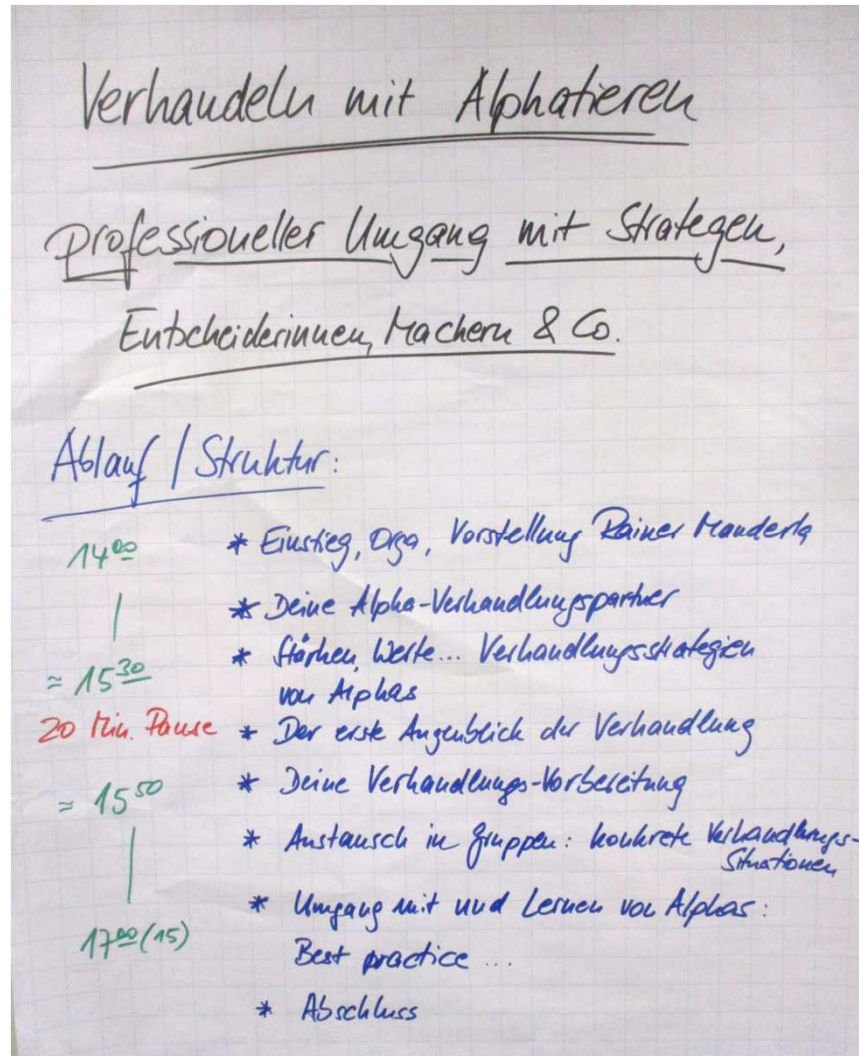 Verhandeln mit Alphatieren
professioneller Umgang mit Strategen,
Entscheiderinnen, Machern & Co.
Ablauf / Struktur:
14⁰⁰ * Einstieg, Orga, Vorstellung Rainer Manderla
* Deine Alpha-Verhandlungspartner
≈ 15³⁰ * Stärken, Werte... Verhandlungsstrategien
von Alphas
20 Min. Pause * Der erste Augenblick der Verhandlung
≈ 15⁵⁰ * Deine Verhandlungs-Vorbereitung
* Austausch in Gruppen: konkrete Verhandlungs-
Situationen
* Umgang mit und Lernen von Alphas:
17⁰⁰ (15) Best practice ...
* Abschluss